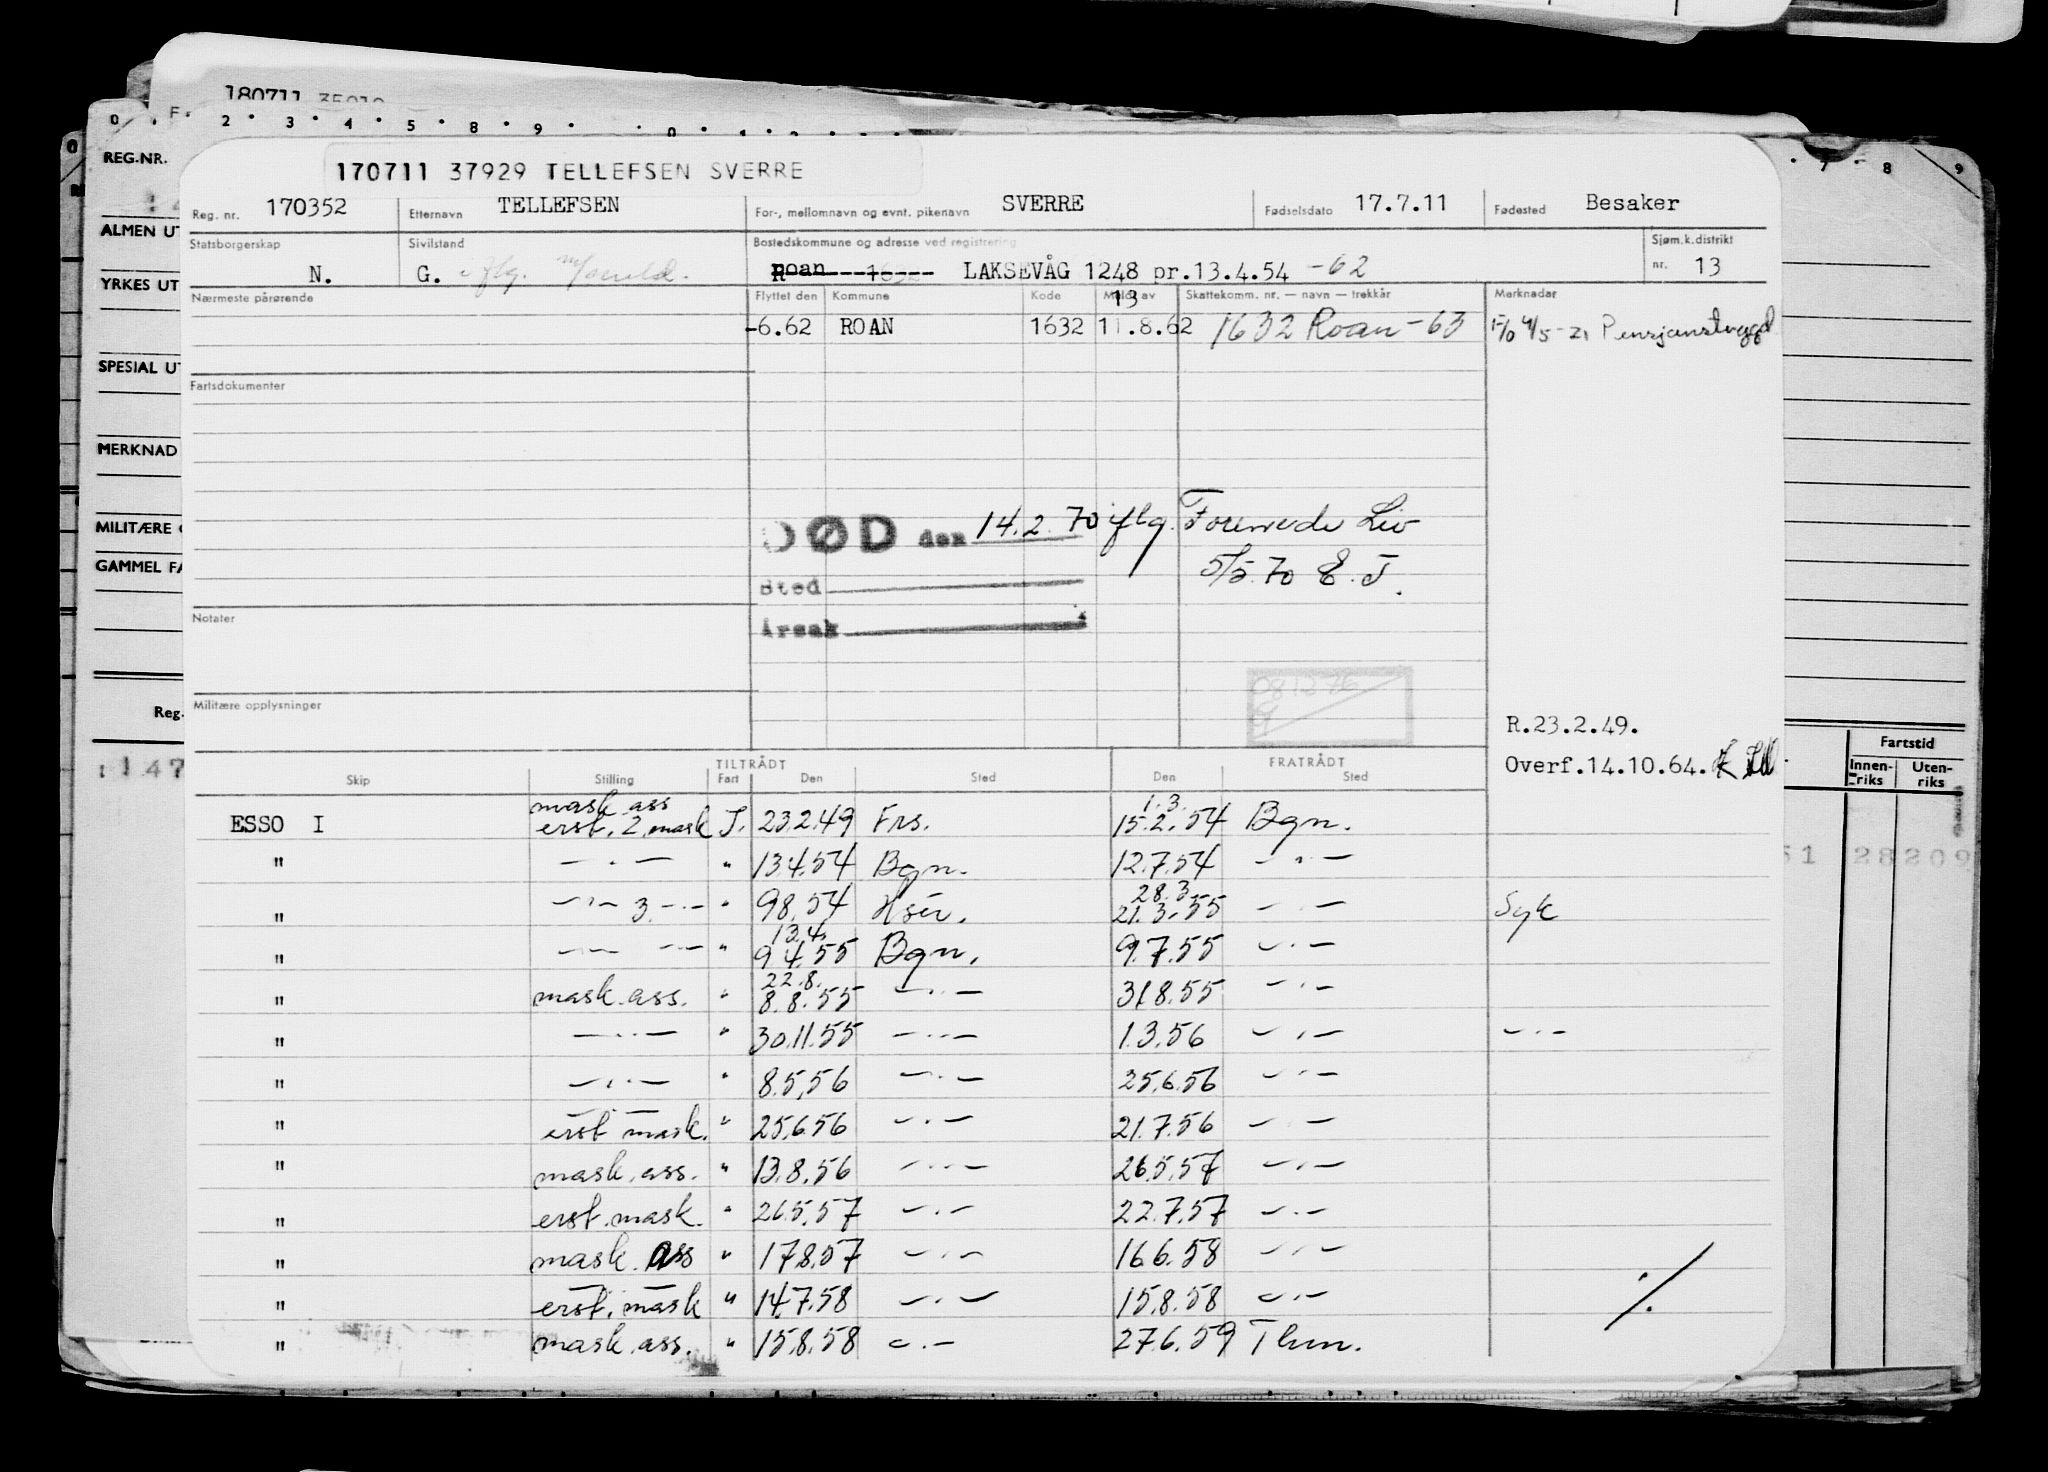 180711 35010
0 . 2 . 3 . 4 . 5 . 8 . 9 . . 0 . 1 . 2
7 . 8 9
REG.NR.
170711 37929 TELLEFSEN SVERRE
Reg. nr. 170352 Etternavn TELLEFSEN For-, mellomnavn og evnt. pikenavn SVERRE Fødselsdato 17.7.11 Fødested Besaker
ALMEN UT
Statsborgerskap N. Sivilstand G. Bostedskommune og adresse ved registrering Roan 1632 LAKSEVÅG 1248 pr.13.4.54 -62 Sjøm.k.distrikt nr. 13
YRKES UT
Nærmeste pårørende Flyttet den Kommune Kode Meld. av Skattekomm. nr. — navn — trekkår Merknader
13
-6.62 ROAN 1632 11.8.62 1632 Roan -63
SPESIAL UT
Fartsdokumenter
MERKNAD
MILITÆRE
DØD den 14.2.70 iflg. Forenede Liv
GAMMEL FA
Sted 5/5.70 E.T.
Årsak
Notater
Militære opplysninger
Reg.
R.23.2.49.
Overf.14.10.64.
Fartstid
Innen-riks Uten-riks
TILTRÅDT FRATRÅDT
Skip Stilling Fart Den Sted Den Sted
mask ass 1.3.
ESSO I erst. 2. mask J. 23.2.49 Frs. 15.2.54 Bgn.
" —"— " 13.4.54 Bgn. 12.7.54 —"—
51 28209
147
28.3.
" —"— 3. —"— " 9.8.54 21.3.55 —"— Syk
13.4.
" —"— —"— " 9.4.55 Bgn. 9.7.55 —"—
22.8.
" mask.ass. " 8.8.55 —"— 31.8.55 —"—
" —"— " 30.11.55 —"— 1.3.56 —"— —"—
" —"— " 8.5.56 —"— 25.6.56 —"—
" erst mask. " 25.6.56 —"— 21.7.56 —"—
" mask.ass. " 13.8.56 —"— 26.5.57 —"—
" erst.mask. " 26.5.57 —"— 22.7.57 —"—
" mask. ass " 17.8.57 —"— 16.6.58 —"—
" erst. mask " 14.7.58 —"— 15.8.58 —"—
" mask.ass. " 15.8.58 —"— 27.6.59 Thm.
./.